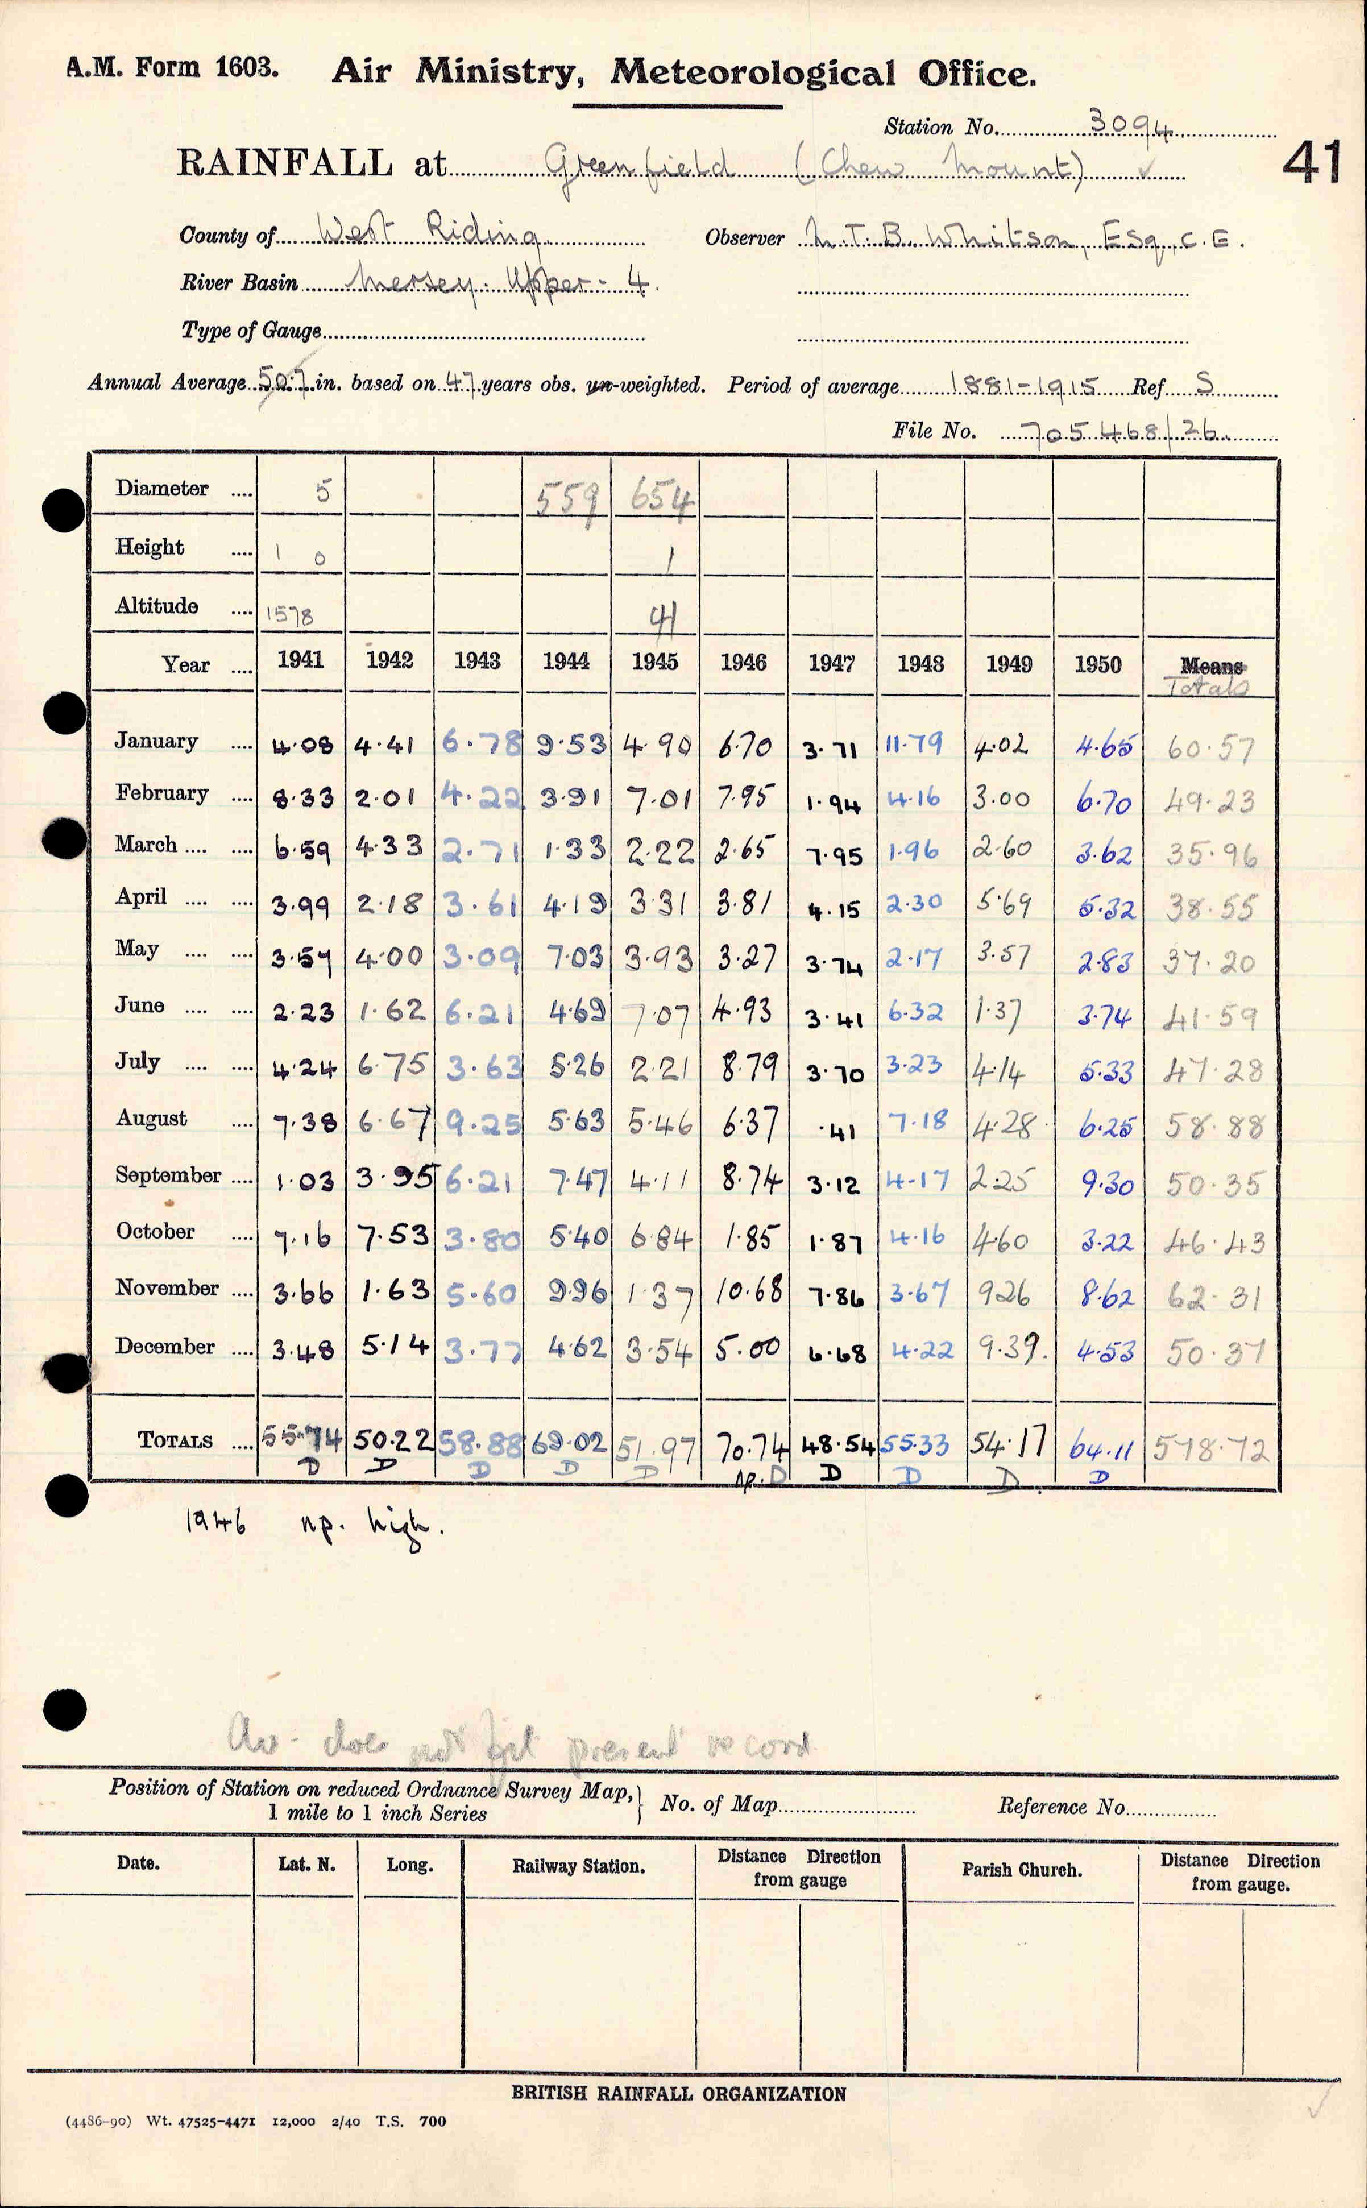 A.M. Form 1603. Air Ministry, Meteorological Office.
Station No. 3094
RAINFALL at Greenfield (Chew Mount) ✓ 41
County of West Riding Observer N.T.B. Whitson, Esq., C.E.
River Basin Mersey. Upper - 4
Type of Gauge
Annual Average 50.7 in. based on 47 years obs. un-weighted. Period of average 1881-1915 Ref S
File No. 705468/26
Diameter .... 5 559 654
Height .... 1 0 1
Altitude .... 1578 41
Year .... 1941 1942 1943 1944 1945 1946 1947 1948 1949 1950 Means
Totals
January .... 4.08 4.41 6.78 9.53 4.90 6.70 3.71 11.79 4.02 4.65 60.57
February .... 8.33 2.01 4.22 3.91 7.01 7.95 1.94 4.16 3.00 6.70 49.23
March .... .... 6.59 4.33 2.71 1.33 2.22 2.65 7.95 1.96 2.60 3.62 35.96
April .... .... 3.99 2.18 3.61 4.19 3.31 3.81 4.15 2.30 5.69 5.32 38.55
May .... .... 3.57 4.00 3.09 7.03 3.93 3.27 3.74 2.17 3.57 2.83 37.20
June .... .... 2.23 1.62 6.21 4.69 7.07 4.93 3.41 6.32 1.37 3.74 41.59
July .... .... 4.24 6.75 3.63 5.26 2.21 8.79 3.70 3.23 4.14 5.33 47.28
August .... 7.38 6.67 9.25 5.63 5.46 6.37 .41 7.18 4.28 6.25 58.88
September .... 1.03 3.95 6.21 7.47 4.11 8.74 3.12 4.17 2.25 9.30 50.35
October .... 7.16 7.53 3.80 5.40 6.84 1.85 1.87 4.16 4.60 3.22 46.43
November .... 3.66 1.63 5.60 9.96 1.37 10.68 7.86 3.67 9.26 8.62 62.31
December .... 3.48 5.14 3.77 4.62 3.54 5.00 6.68 4.22 9.39. 4.53 50.37
TOTALS .... 55.74 50.22 58.88 69.02 51.97 70.74 48.54 55.33 54.17 64.11 578.72
D D D D D np. D D D D. D
1946 np. high.
Av. does not fit present record
Position of Station on reduced Ordnance Survey Map, } No. of Map Reference No.
1 mile to 1 inch Series
Date. Lat. N. Long. Railway Station. Distance Direction from gauge Parish Church. Distance Direction from gauge.
BRITISH RAINFALL ORGANIZATION
(4486-90) Wt. 47525-4471 12,000 2/40 T.S. 700